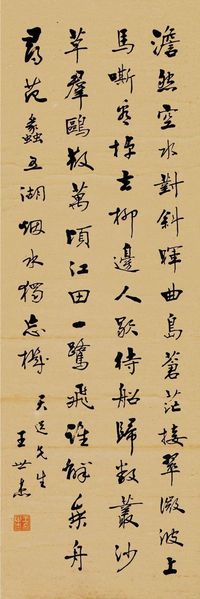 澹然空水對斜暉曲島蒼茫接翠微波上
馬嘶看棹去柳邊人歇待船歸數叢沙
草羣鷗散萬頃江田一鷺飛誰解乘舟
尋范蠡五湖烟水獨忘機
天先生
王世杰